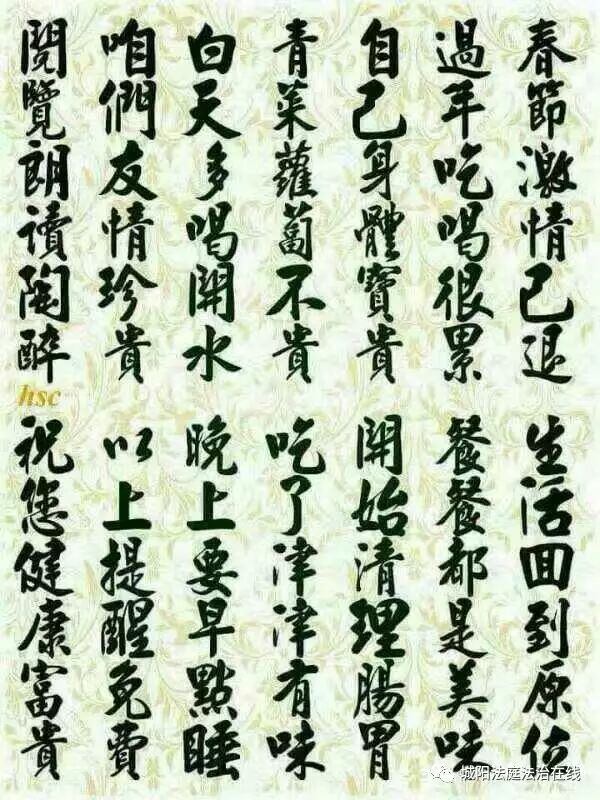 春節激情已退
生活回到原位
過年吃喝很累
餐餐都是美味
自己身體寶貴
開始清理腸胃
青菜蘿蔔不貴
吃了津津有味
白天多喝開水
晚上要早點睡
咱們友情珍貴
以上提醒免費
閱覽朗讀陶醉
祝您健康富貴
hsc
城阳法庭法治在线